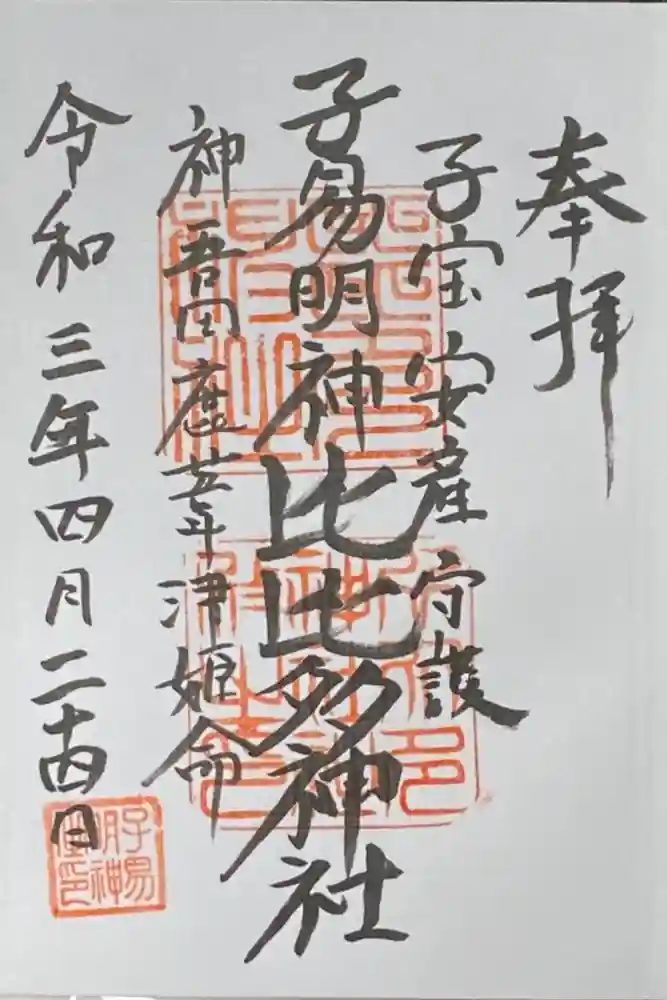 奉拝
子宝安産守護
子易明神比比多神社
神吾田鹿葦津姫命
令和三年四月二十四日
子易
明神